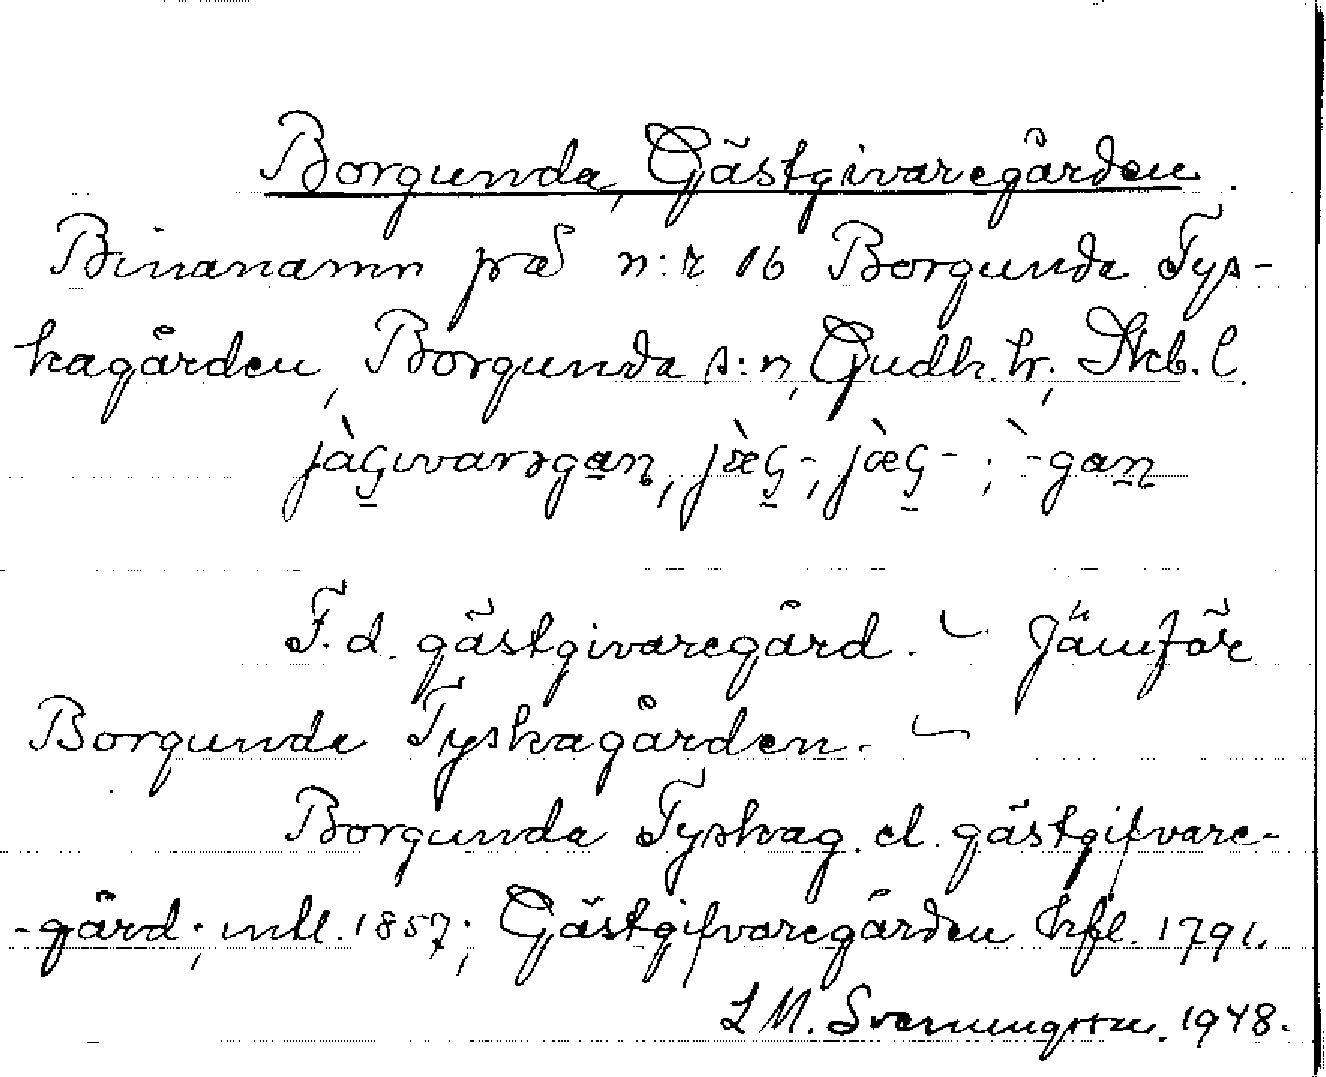 Borgunda, Gästgivaregården
Binanamn på n:r 16 Borgunda Tys-
kagården, Borgunda s:n, Gudh. hr, Skb. l.
jàʂ̱ıvarəga̱ɳ, jæ̀ʂ̱-, jæ̀ʂ̱- ; `-gaɳ̱
F. d. gästgivaregård. – Jämför
Borgunda Tyskagården. –
Borgunda Tyskag. el. gästgifvare-
-gård; mtl. 1857; Gästgifvaregården hfl. 1791.
L M. Svenungsson. 1948.